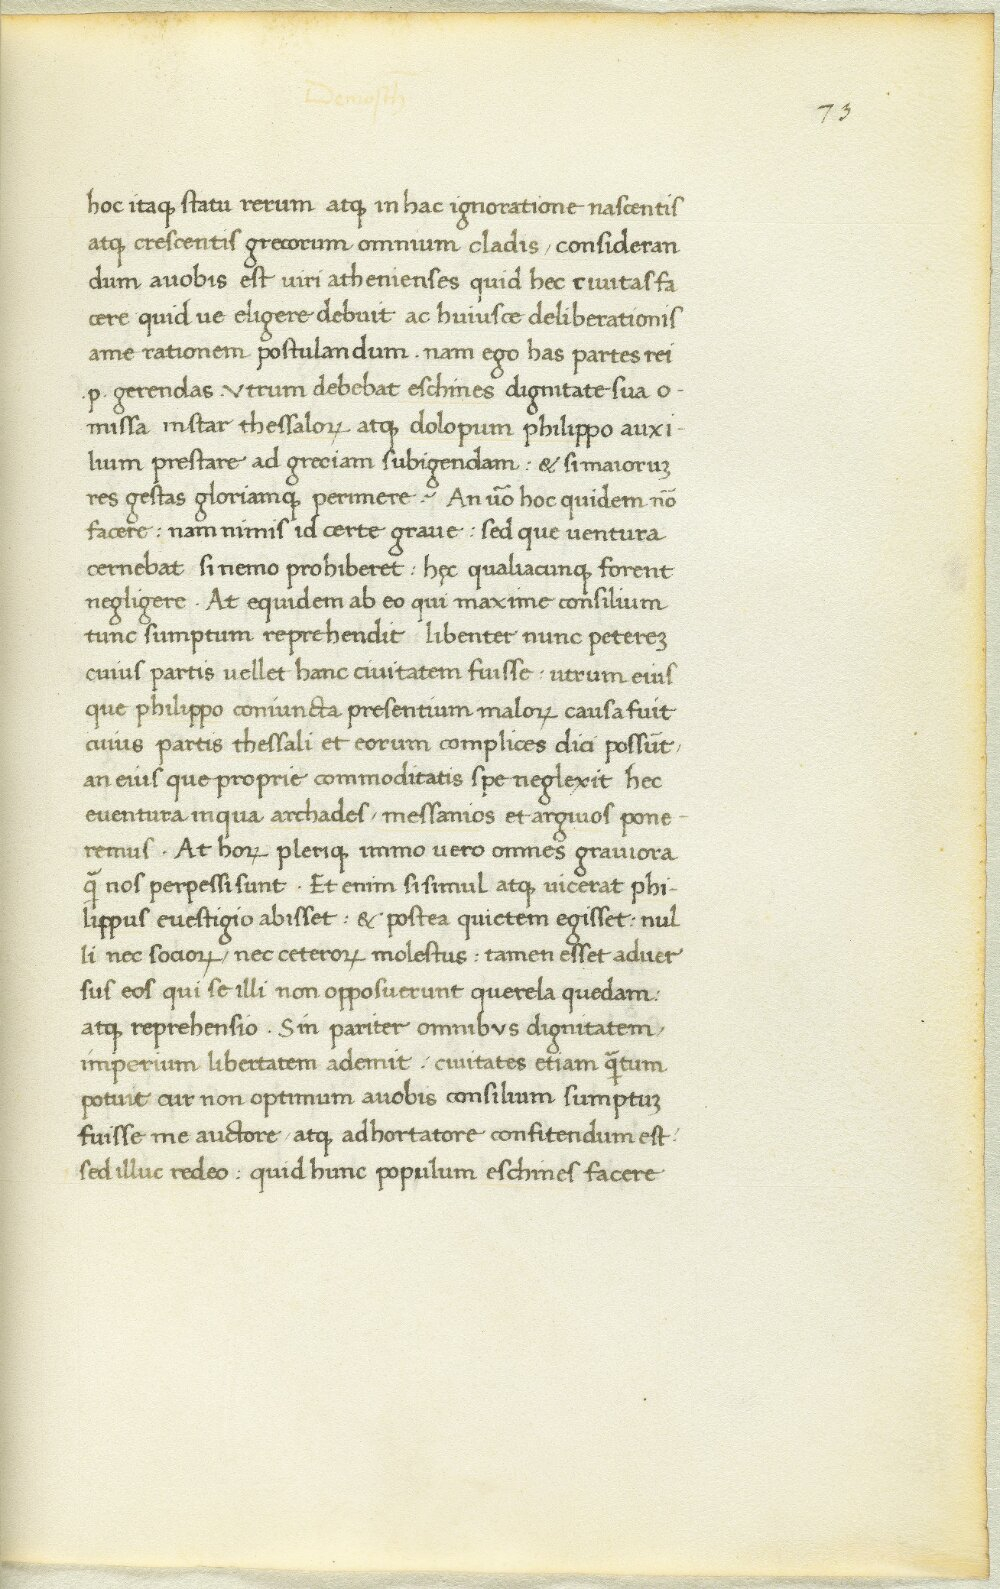 Demosth̄
73
hoc itaqꝫ statu rerum atqꝫ in hac ignoratione nascentis
atqꝫ crescentis grecorum omnium cladis / consideran
dum auobis est uiri athenienses quid hec ciuitas fa
cere quid ue eligere debuit ac huiusce deliberationis
ame rationem postulandum . nam ego has partes rei
.p. gerendas . Vtrum debebat eschines dignitate sua o-
missa instar thessaloꝝ atqꝫ dolopum philippo auxi-
lium prestare ad greciam subigendam : & si maioruꝫ
res gestas gloriamqꝫ perimere ~ An uo͞ hoc quidem no͞
facere : nam nimis id certe graue : sed que uentura
cernebat si nemo prohiberet : hęc qualiacunqꝫ forent
negligere . At equidem ab eo qui maxime consilium
tunc sumptum reprehendit libenter nunc petereꝫ
cuius partis uellet hanc ciuitatem fuisse . utrum eius
que philippo coniuncta presentium maloꝝ causa fuit
cuius partis thessali et eorum complices dici possūt /
an eius que proprie commoditatis spe neglexit hec
euentura inqua archades / messanios et argiuos pone-
remus . At hoꝝ pleriqꝫ immo uero omnes grauiora
qᷓ nos perpessi sunt . Et enim si simul atqꝫ uicerat phi-
lippus euestigio abisset : & postea quietem egisset : nul
li nec socioꝝ / nec ceteroꝝ molestus : tamen esset aduer
sus eos qui se illi non opposuerunt querela quedam :
atqꝫ reprehensio . Sin pariter omnibVs dignitatem /
imperium libertatem ademit : ciuitates etiam qᷓtum
potuit cur non optimum auobis consilium sumptuꝫ
fuisse me auctore / atqꝫ adhortatore confitendum est :
sed illuc redeo : quid hunc populum eschines facere